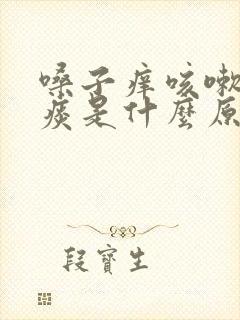 嗓子痒咳嗽
痰是什麽原
段寶生